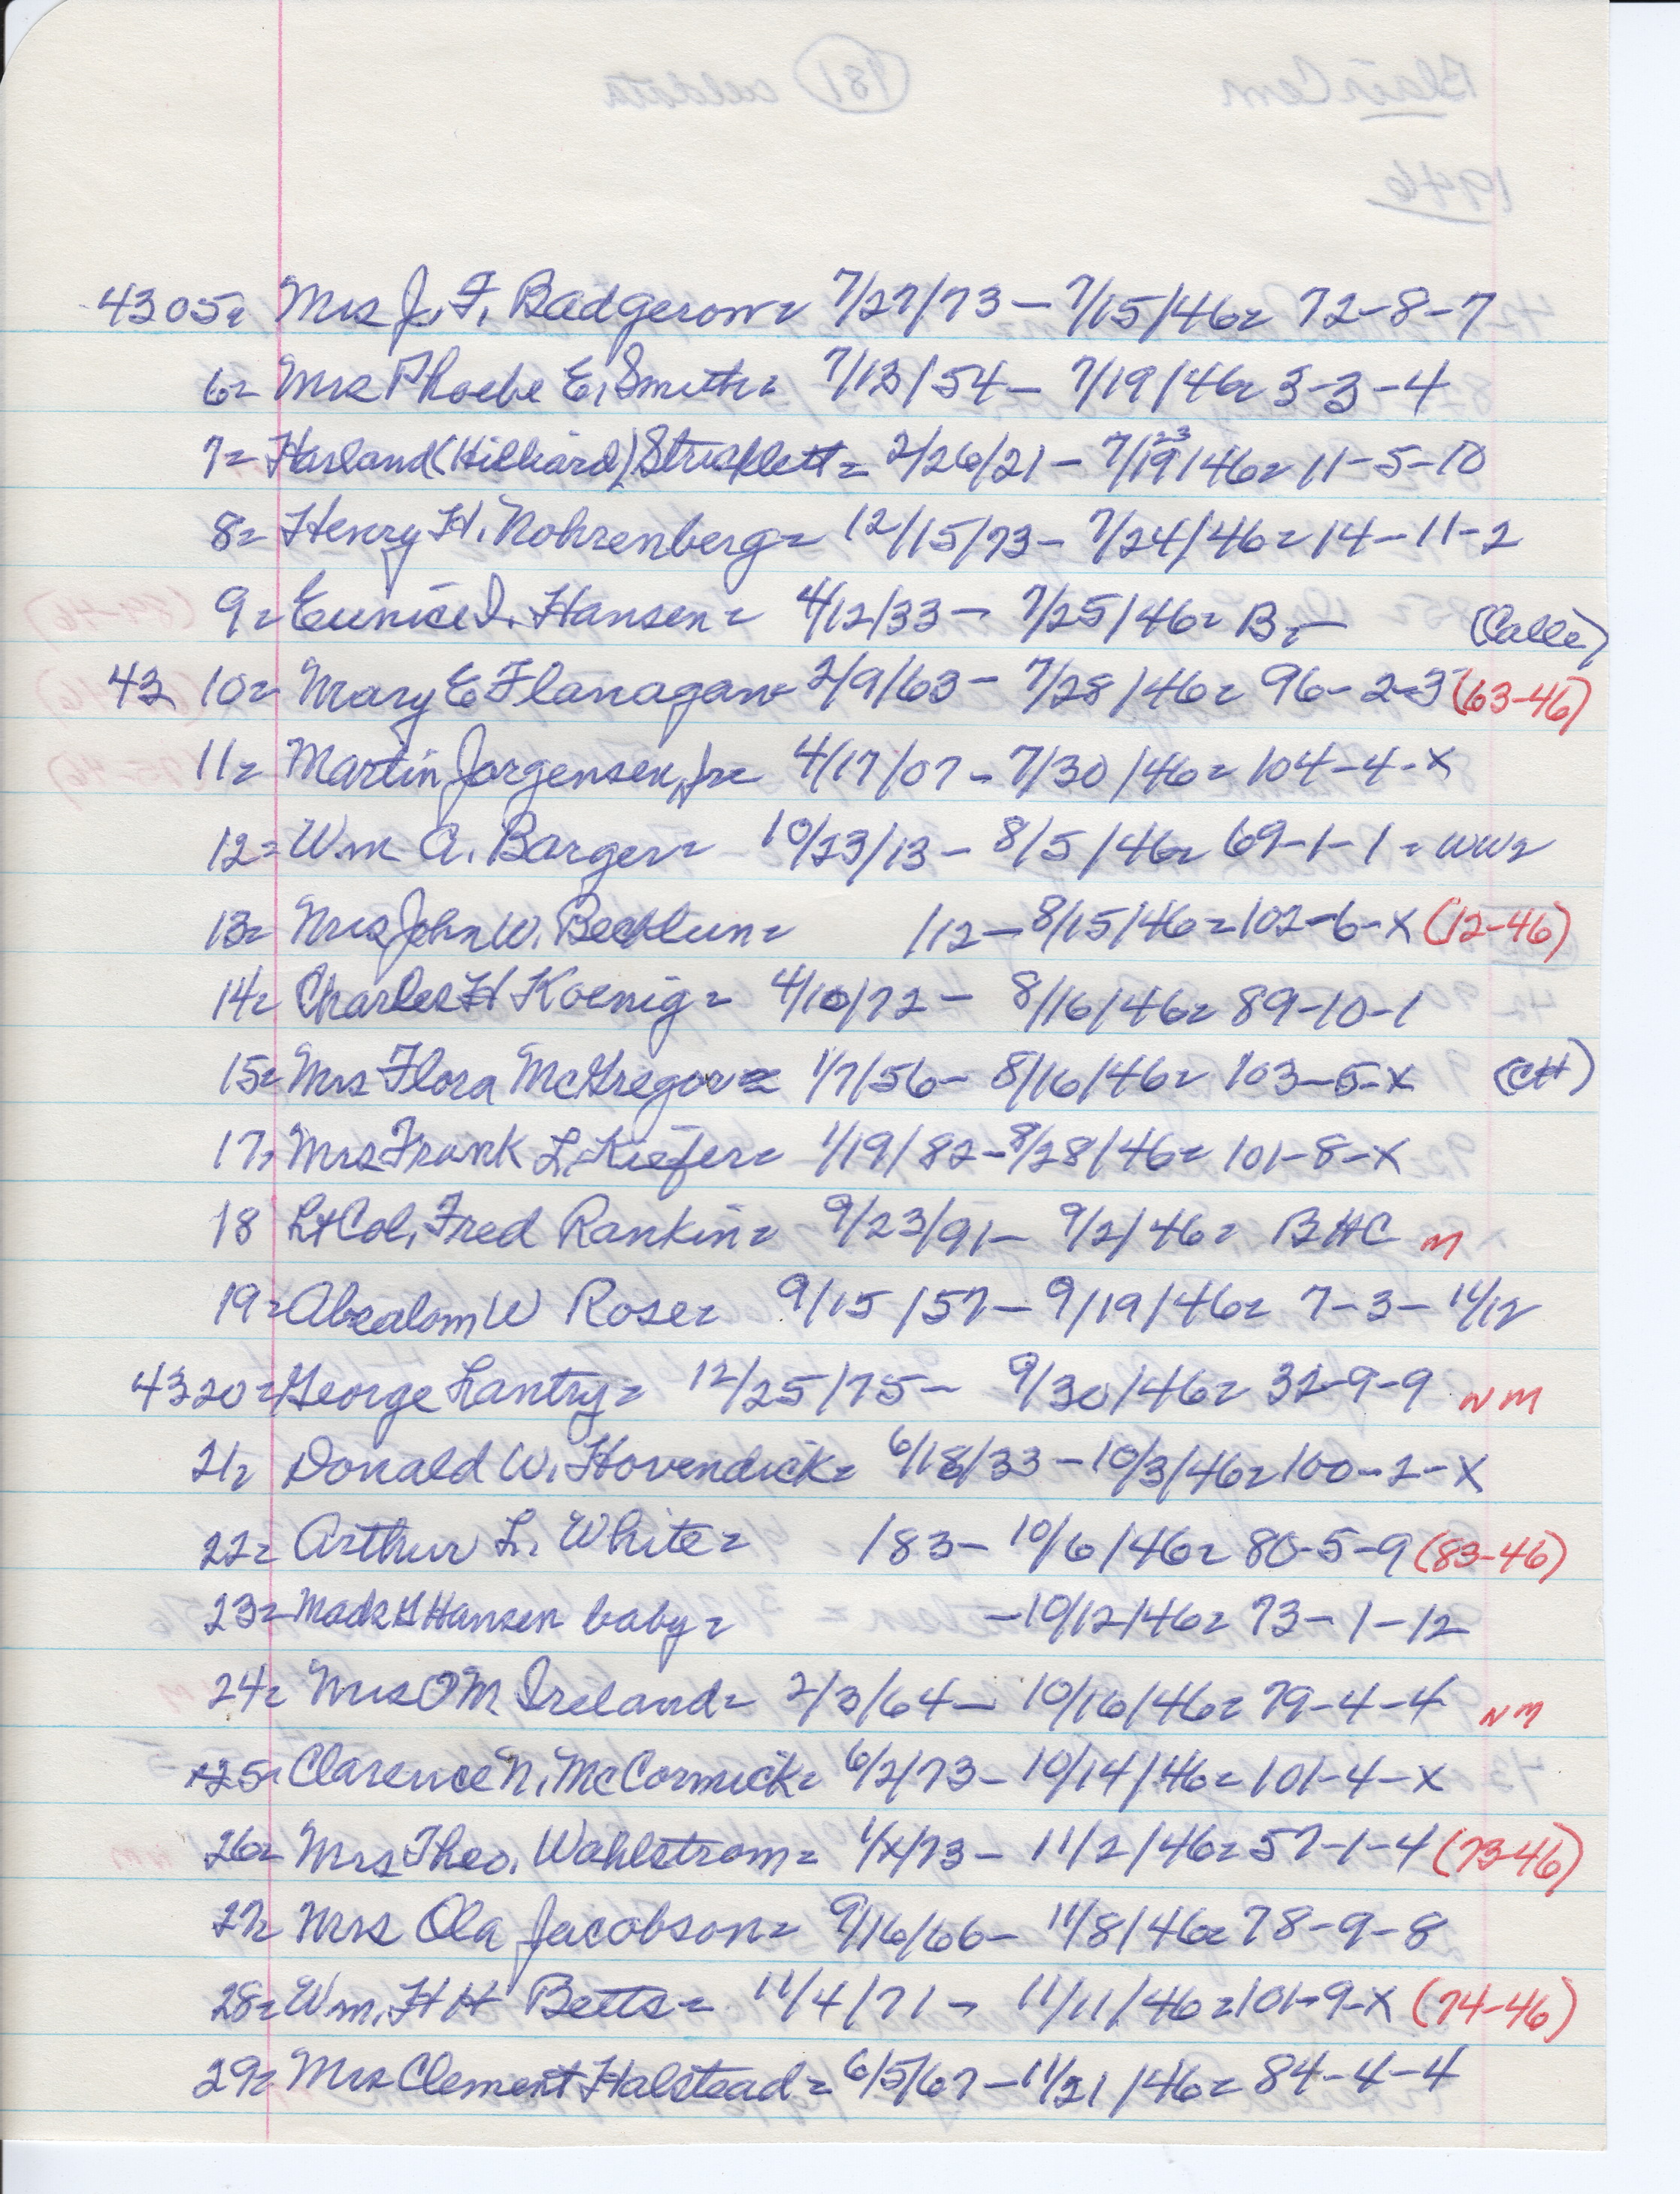 4305= Mrs J. F. Badgerow= 7/27/73 - 7/15/46= 72-8-7
6= Mrs Phoebe E. Smith= 7/13/54 - 7/19/46= 3-3-4
7= Harland (Hilliard) Stricklett= 2/26/21 - 7/19/46= 11-5-10
23
8= Henry H. Rohrenberg= 12/15/73 - 7/24/46= 14-11-2
9= Eunice I. Hansen= 4/12/33 - 7/25/46= B. - (Calli)
43 10= Mary E Flanagan= 2/9/63 - 7/28/46= 96-2-3 (63-46)
11= Martin Jorgensen, Jr= 4/17/07 - 7/30/46= 104-4-X
12= Wm A. Barger= 10/23/13 - 8/5/46= 69-1-1= WW2
13= Mrs John W. Becklun= /12 - 8/15/46= 102-6-X (12-46)
14= Charles H Koenig= 4/10/72 - 8/16/46= 89-10-1
15= Mrs Flora McGregor= 1/7/56 - 8/16/46= 103-5-X (CH)
17= Mrs Frank L. Kiefer= 1/19/82 - 8/28/46= 101-8-X
18 Lt Col. Fred Rankin= 9/23/91 - 9/2/46= BHC M
19= Absalom W Rose= 9/15/57 - 9/19/46= 7-3-11/12
4320= George Lantry= 12/25/75 - 9/30/46= 32-9-9 NM
21= Donald W. Hovendick= 6/18/33 - 10/3/46= 100-2-X
22= Arthur L. White= /83 - 10/6/46= 80-5-9 (83-46)
23= Mads G Hansen baby= - 10/12/46= 73-1-12
24= Mrs O M Ireland= 2/3/64 - 10/16/46= 79-4-4 NM
25= Clarence N. McCormick= 6/2/73 - 10/14/46= 101-4-X
26= Mrs Theo. Wahlstrom= 1/X/73 - 11/2/46= 57-1-4 (73-46)
27= Mrs Ola Jacobson= 9/16/66 - 11/8/46= 78-9-8
28= Wm. H H Betts= 11/4/71 - 11/11/46= 101-9-X (74-46)
29= Mrs Clement Halstead= 6/5/67 - 11/21/46= 84-4-4